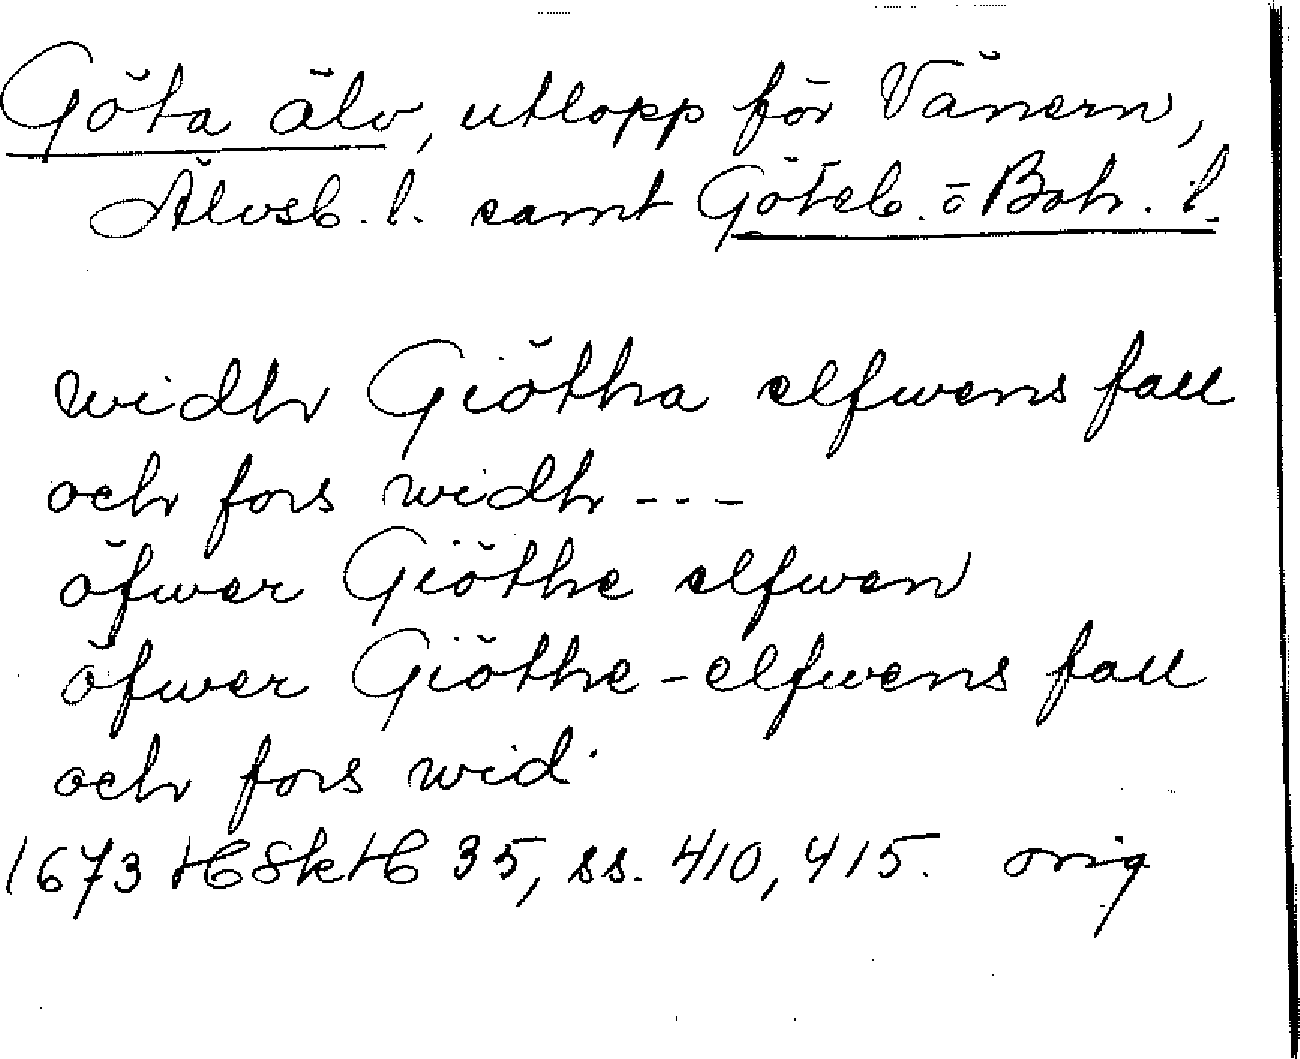 Göta älv, utlopp för Vänern,
Älvsb. l. samt Göteb. o Boh. l.
widh Giötha elfwens fall
och fors widh ---
öfwer Giöthe elfwen
öfwer Giöthe-elfwens fall
och fors wid.
1673 HSkH 35, ss. 410, 415. orig